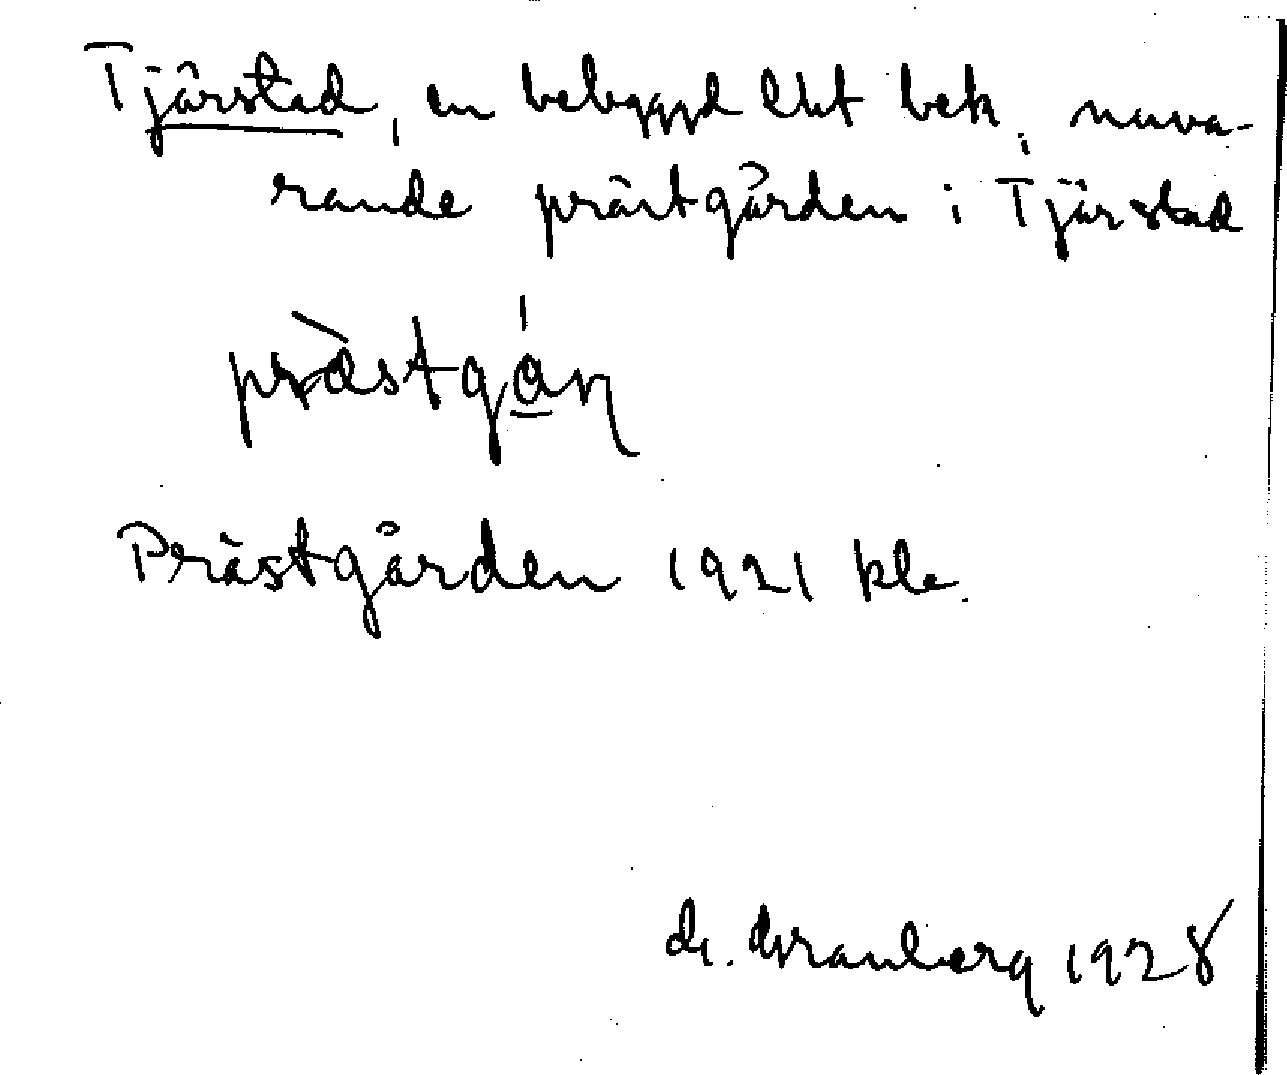 Tjärstad, en bebyggd lht bek, nuva-
rande prästgården i Tjärstad
pràstgá̱ɳ
Prästgården 1921 kle.
G. Granberg 1928